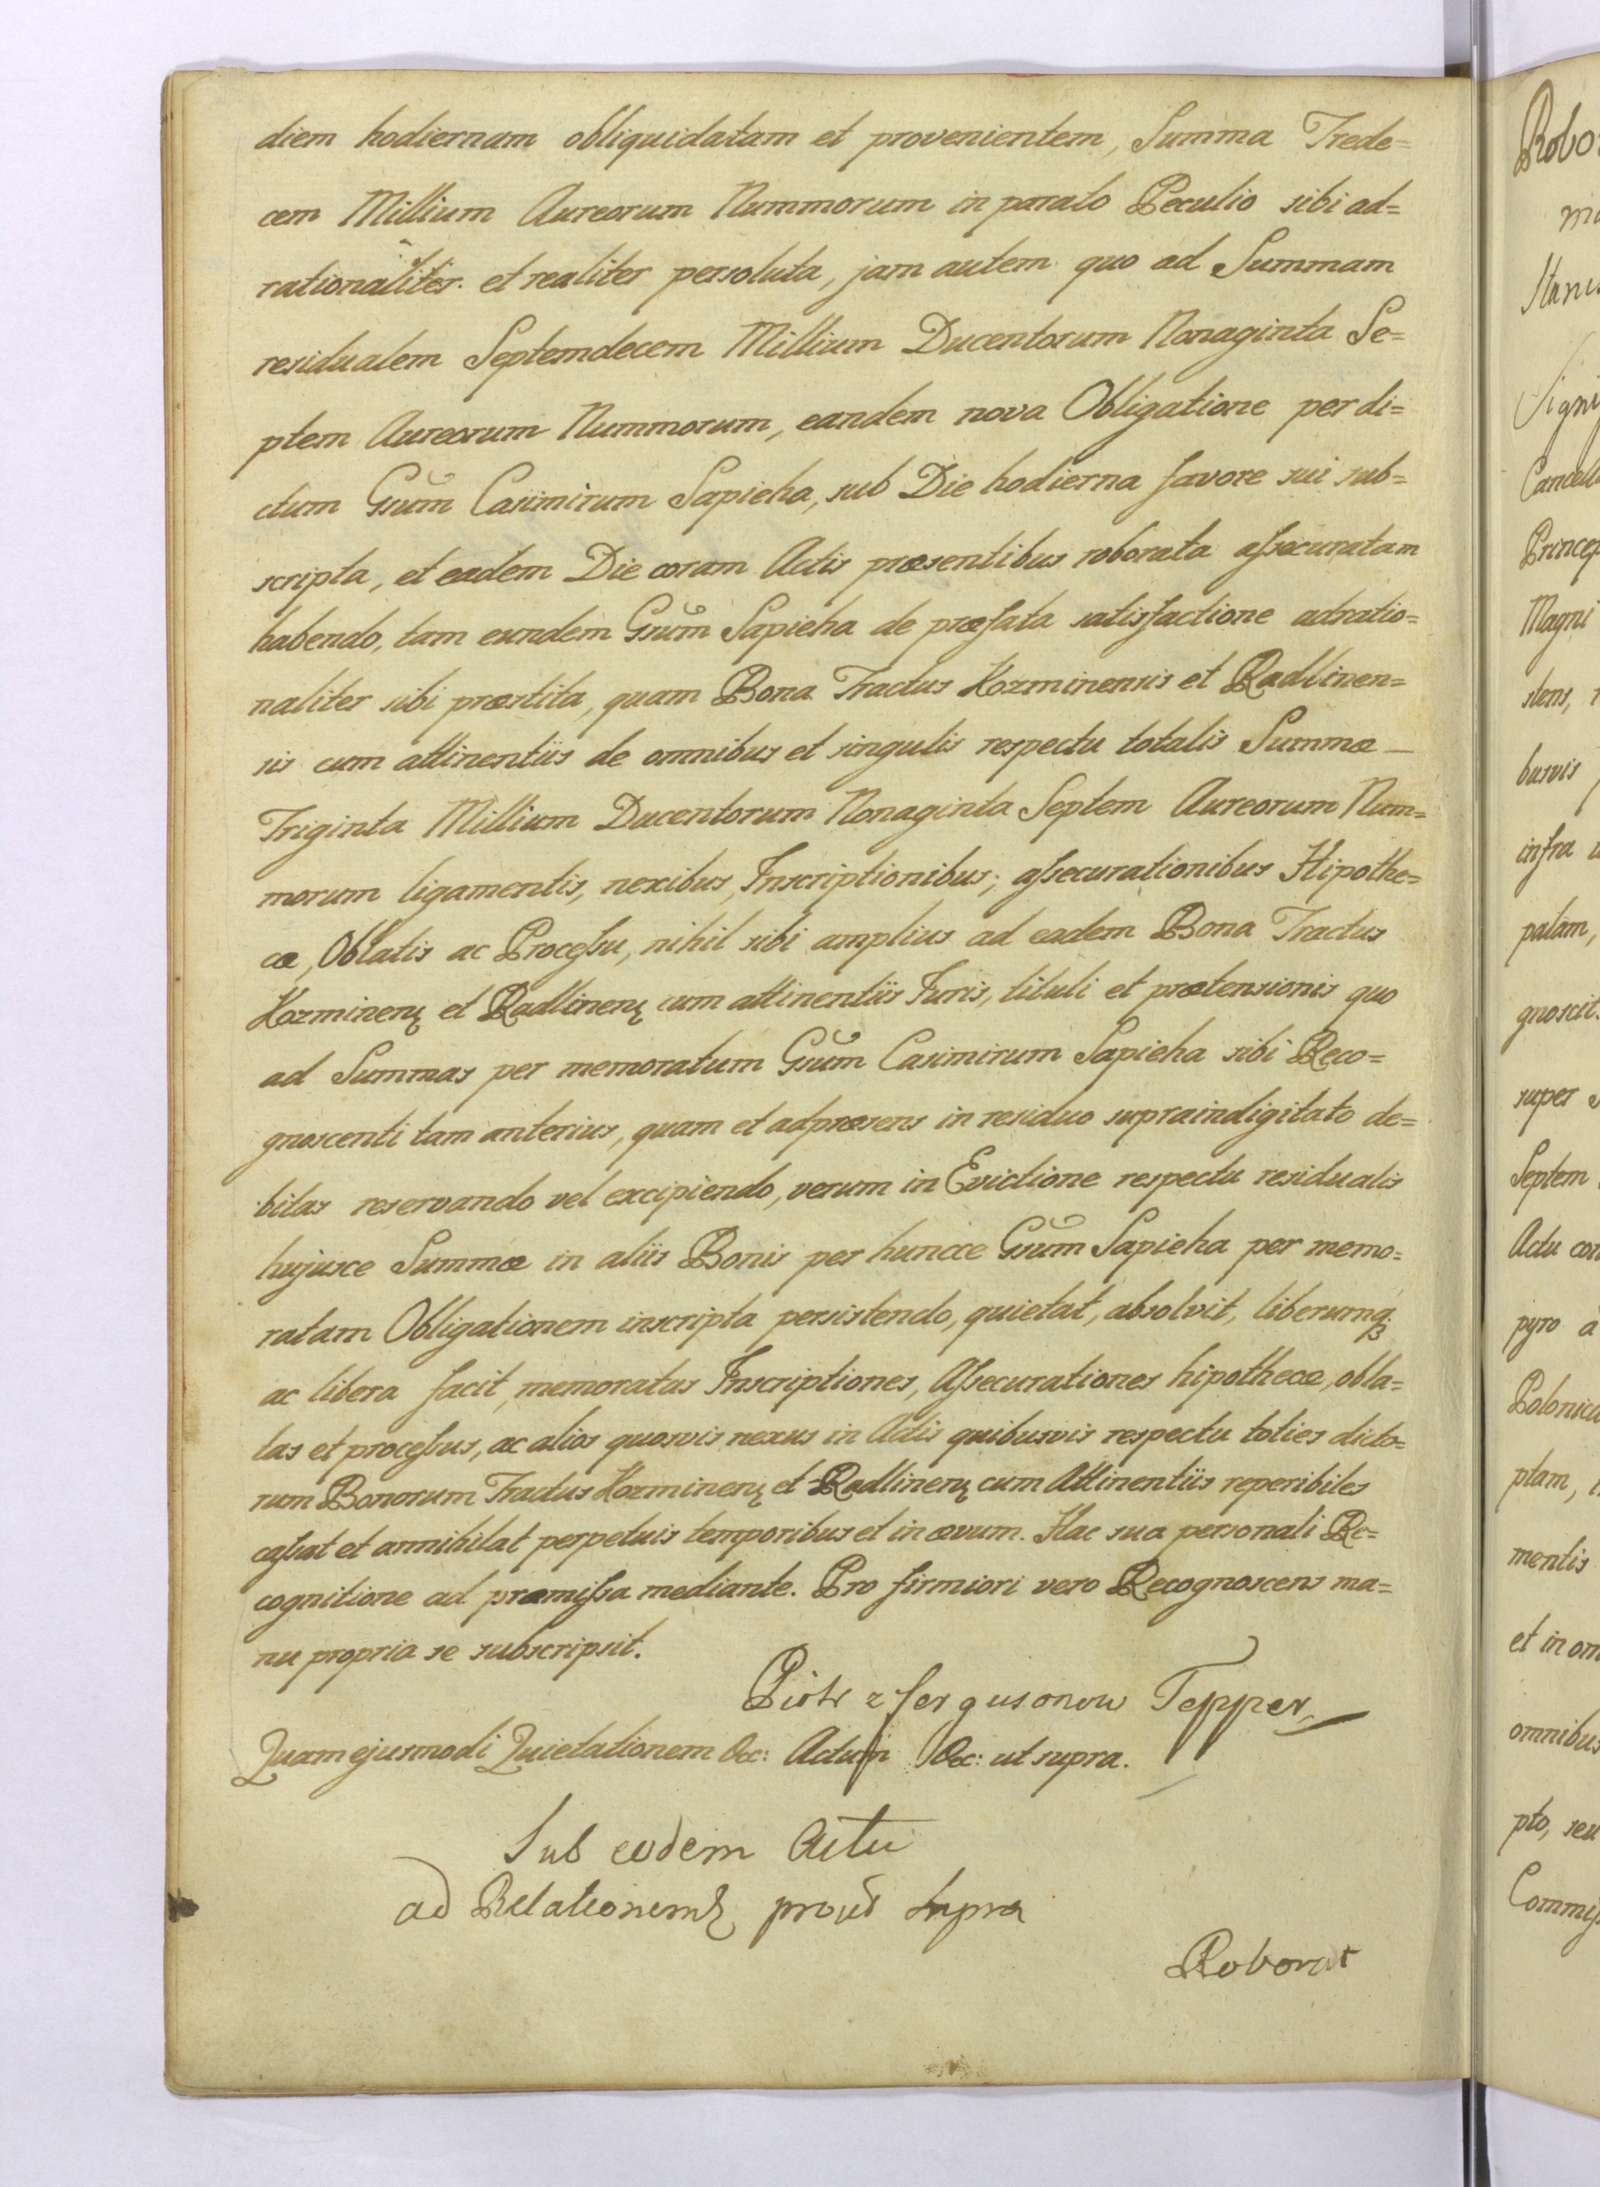 diem hodiernam obliquidatam et provenientem, Summa Trede=
cem Millium Aureorum Nummorum in parato Peculio sibi ad=
rationaliter et realiter persoluta, jam autem quo ad Summam
residualem Septemdecem Millium Ducentorum Nonaginta Se=
ptem Aureorum Nummorum, eandem nova Obligatione per di=
ctum Gsum Casimirum Sapieha, sub Die hodierna favore sui sub=
scripta, et eadem Die coram Actis præsentibus roborata assecuratam
habendo, tam eundem Gsum Sapieha de præfata satisfactione adratio=
naliter sibi præstita, quam Bona Tractus Kozminensis et Radlinen=
sis cum attinentiis de omnibus et singulis respectu totalis Summæ
Triginta Millium Ducentorum Nonaginta Septem Aureorum Num=
morum ligamentis, nexibus, Inscriptionibus, assecurationibus Hipothe=
cæ, Oblatis ac Processu, nihil sibi amplius ad eadem Bona Tractus
Kozminen; et Radlinen; cum attinentiis Juris, tituli et prætensionis quo
ad Summas per memoratum Gsum Casimirum Sapieha sibi Reco=
gnoscenti tam anterius, quam et adpræsens in residuo supraindigitato de=
bitas reservando vel excipiendo, verum in Evictione respectu residualis
hujusce Summæ in aliis Bonis per huncce Gsum Sapieha per memo=
ratam Obligationem inscripta persistendo, quietat, absolvit, liberumq;
ac libera facit, memoratas Inscriptiones, Assecurationes hipothecæ, obla=
tas et processus, ac alios quosvis nexus in Actis quibusvis respectu toties dicto=
rum Bonorum Tractus Kozminen; et Radlinen; cum Attinentiis reperibiles
cassat et annihilat perpetuis temporibus et in ævum. Hac sua personali Re=
cognitione ad præmissa mediante. Pro firmiori vero Recognoscens ma=
nu propria se subscripsit.
Piotr z fergusonow Tepper
Quam ejusmodi Quietationem &c: Actum &c: ut supra.
Sub eodem Actu
ad Relationem prout supra
Roborat
Robo
Stanis
Signi
Cancell
Princep
Magni
stens,
busvis
infra
palam,
gnoscit.
super
Septem
Actu con
pyro a
Polonica
ptam,
mentis
et in om
omnibus
pto, seu
Commis